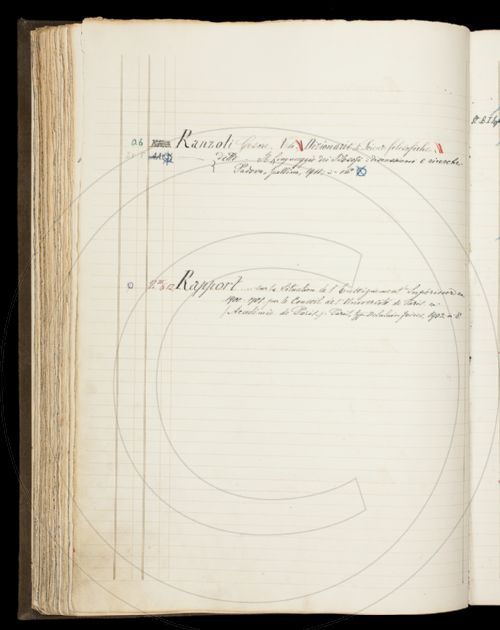 a.6 Ranzoli Cesare. Vedi Dizionario di scienze filosofiche
detto Il linguaggio dei filosofi discussioni e ricerche
Padova, Gallina, 1911. in 16°
Rapport ... sur la situation de l'Enseignement Supérieur en
1900-1901 par le Conseil de l'Université de Paris, en
Académie de Paris. Paris, Typ. Delalain frères, 1902. in 8°